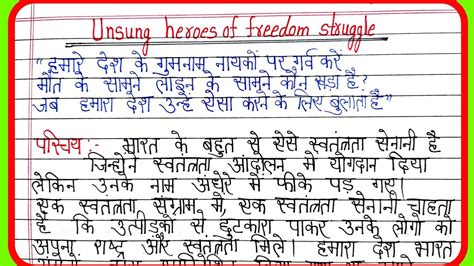 Unsung heroes of freedom struggle
"हमारे देश के गुमनाम नायकों पर गर्व करें
मौत के सामने लाइन के सामने कौन खड़ा है?
जब हमारा देश उन्हें ऐसा करने के लिए बुलाता है"
परिचय :- भारत के बहुत से ऐसे स्वतंत्रता सेनानी है
जिन्होंने स्वतंत्रता आंदोलन में योगदान दिया
लेकिन उनके नाम अंधेरे में फीके पड़ गए।
एक स्वतंत्रता संग्राम में, एक स्वतंत्रता सेनानी चाहता
है कि उत्पीड़कों से छुटकारा पाकर उनके लोगों को
अपना राष्ट्र और स्वतंत्रता मिले। हमारा देश भारत